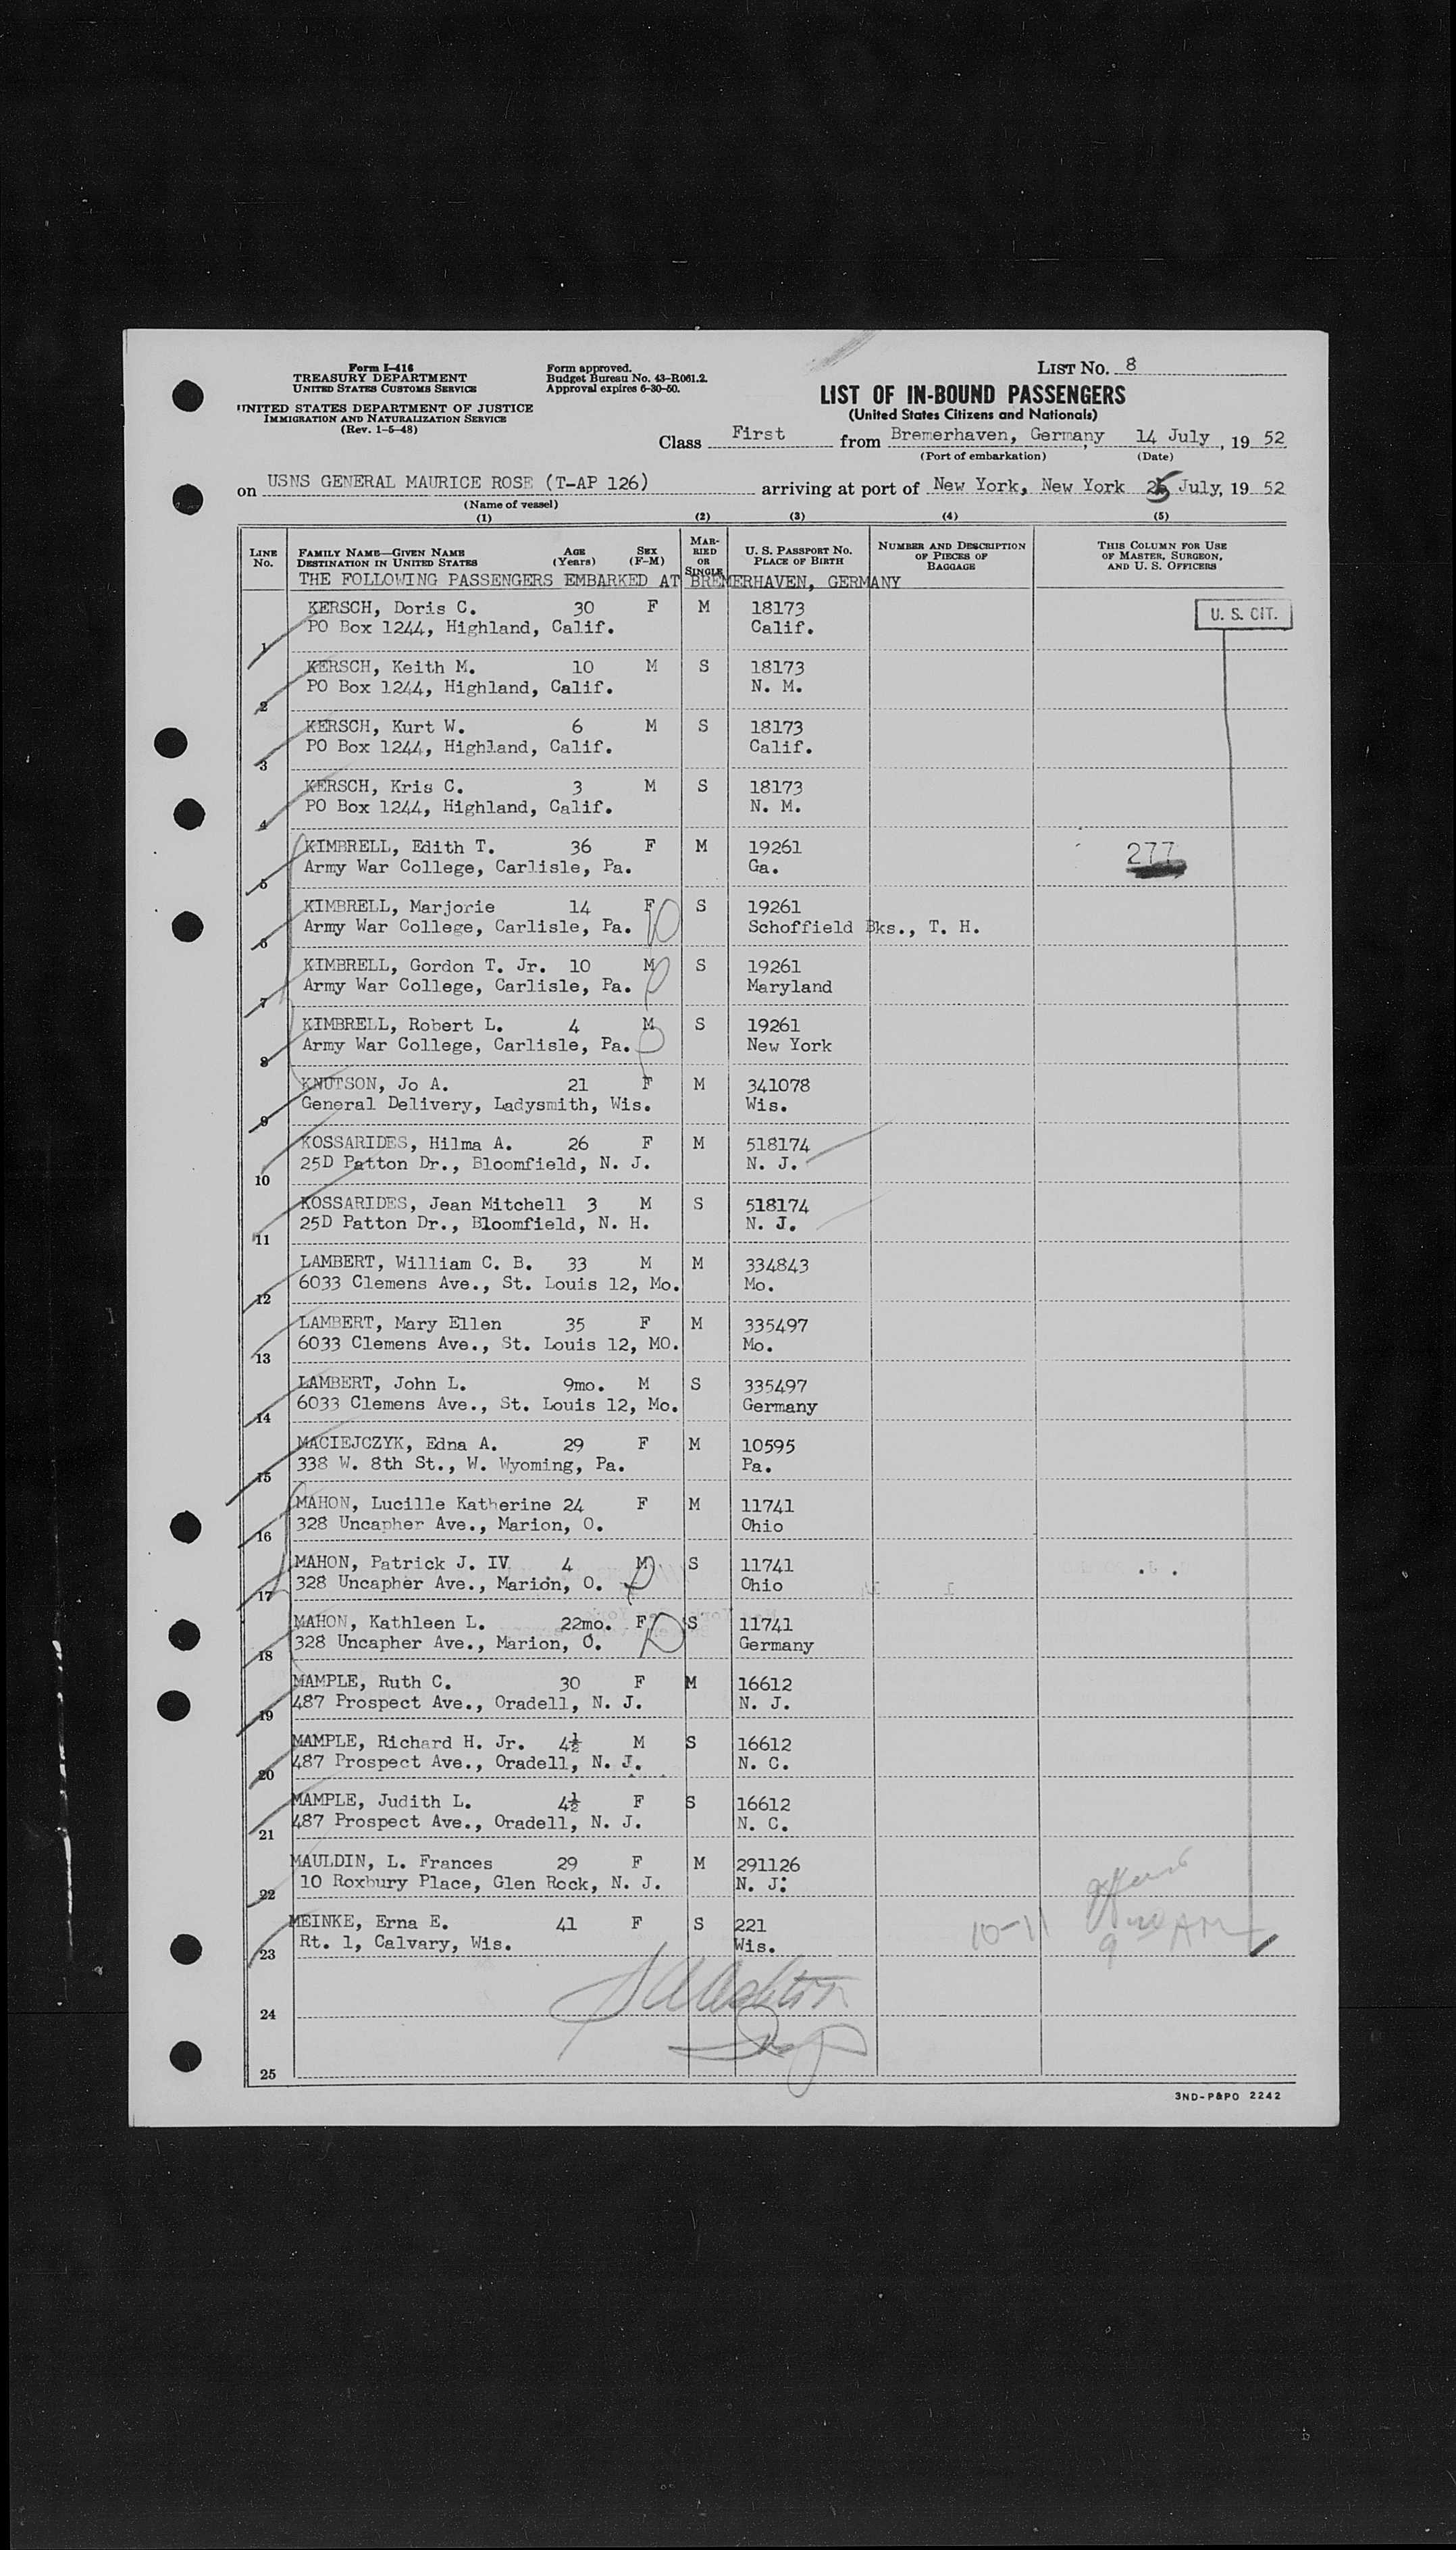 Form I-416
TREASURY DEPARTMENT
UNITED STATES CUSTOMS SERVICE
UNITED STATES DEPARTMENT OF JUSTICE
IMMIGRATION AND NATURALIZATION SERVICE
(Rev. 1-5-48)
Form approved.
Budget Bureau No. 43-R061.2.
Approval expires 6-30-50.
LIST NO. 8
LIST OF IN-BOUND PASSENGERS
(United States Citizens and Nationals)
Class First from Bremerhaven, Germany 14 July, 19 52
(Port of embarkation) (Date)
on USNS GENERAL MAURICE ROSE (T-AP 126) arriving at port of New York, New York 25 July, 19 52
(Name of vessel)
(1) (2) (3) (4) (5)
LINE NO. FAMILY NAME—GIVEN NAME DESTINATION IN UNITED STATES AGE (Years) SEX (F-M) MARRIED OR SINGLE U. S. PASSPORT NO. PLACE OF BIRTH NUMBER AND DESCRIPTION OF PIECES OF BAGGAGE THIS COLUMN FOR USE OF MASTER, SURGEON, AND U. S. OFFICERS
THE FOLLOWING PASSENGERS EMBARKED AT BREMERHAVEN, GERMANY
KERSCH, Doris C. 30 F M 18173 U. S. CIT.
1 PO Box 1244, Highland, Calif. Calif.
KERSCH, Keith M. 10 M S 18173
2 PO Box 1244, Highland, Calif. N. M.
KERSCH, Kurt W. 6 M S 18173
3 PO Box 1244, Highland, Calif. Calif.
KERSCH, Kris C. 3 M S 18173
4 PO Box 1244, Highland, Calif. N. M.
KIMBRELL, Edith T. 36 F M 19261 277
5 Army War College, Carlisle, Pa. Ga.
KIMBRELL, Marjorie 14 F S 19261
6 Army War College, Carlisle, Pa. Schoffield Bks., T. H.
KIMBRELL, Gordon T. Jr. 10 M S 19261
7 Army War College, Carlisle, Pa. Maryland
KIMBRELL, Robert L. 4 M S 19261
8 Army War College, Carlisle, Pa. New York
KNUTSON, Jo A. 21 F M 341078
9 General Delivery, Ladysmith, Wis. Wis.
KOSSARIDES, Hilma A. 26 F M 518174
10 25D Patton Dr., Bloomfield, N. J. N. J.
KOSSARIDES, Jean Mitchell 3 M S 518174
11 25D Patton Dr., Bloomfield, N. H. N. J.
LAMBERT, William C. B. 33 M M 334843
12 6033 Clemens Ave., St. Louis 12, Mo. Mo.
LAMBERT, Mary Ellen 35 F M 335497
13 6033 Clemens Ave., St. Louis 12, MO. Mo.
LAMBERT, John L. 9mo. M S 335497
14 6033 Clemens Ave., St. Louis 12, Mo. Germany
MACIEJCZYK, Edna A. 29 F M 10595
15 338 W. 8th St., W. Wyoming, Pa. Pa.
MAHON, Lucille Katherine 24 F M 11741
16 328 Uncapher Ave., Marion, O. Ohio
MAHON, Patrick J. IV 4 M S 11741
17 328 Uncapher Ave., Marion, O. Ohio
MAHON, Kathleen L. 22mo. F S 11741
18 328 Uncapher Ave., Marion, O. Germany
MAMPLE, Ruth C. 30 F M 16612
19 487 Prospect Ave., Oradell, N. J. N. J.
MAMPLE, Richard H. Jr. 4½ M S 16612
20 487 Prospect Ave., Oradell, N. J. N. C.
MAMPLE, Judith L. 4½ F S 16612
21 487 Prospect Ave., Oradell, N. J. N. C.
MAULDIN, L. Frances 29 F M 291126
22 10 Roxbury Place, Glen Rock, N. J. N. J.
MEINKE, Erna E. 41 F S 221 10-11
23 Rt. 1, Calvary, Wis. Wis.
24
25
3ND-P&PO 2242